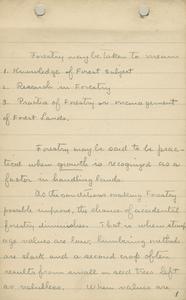 Forestry may be taken to mean
1. Knowledge of Forest subject
2. Research in Forestry
3. Practice of Forestry or management
of Forest Lands.
Forestry may be said to be prac-
tical when growth is recognized as a
factor in handling lands.
As the conditions making Forestry
possible improve, the chance of accidental
forestry diminishes. That is when stump-
age values are low, lumbering methods
are slack and a second crop often
results from small or seed trees left
as valueless. When values are
1